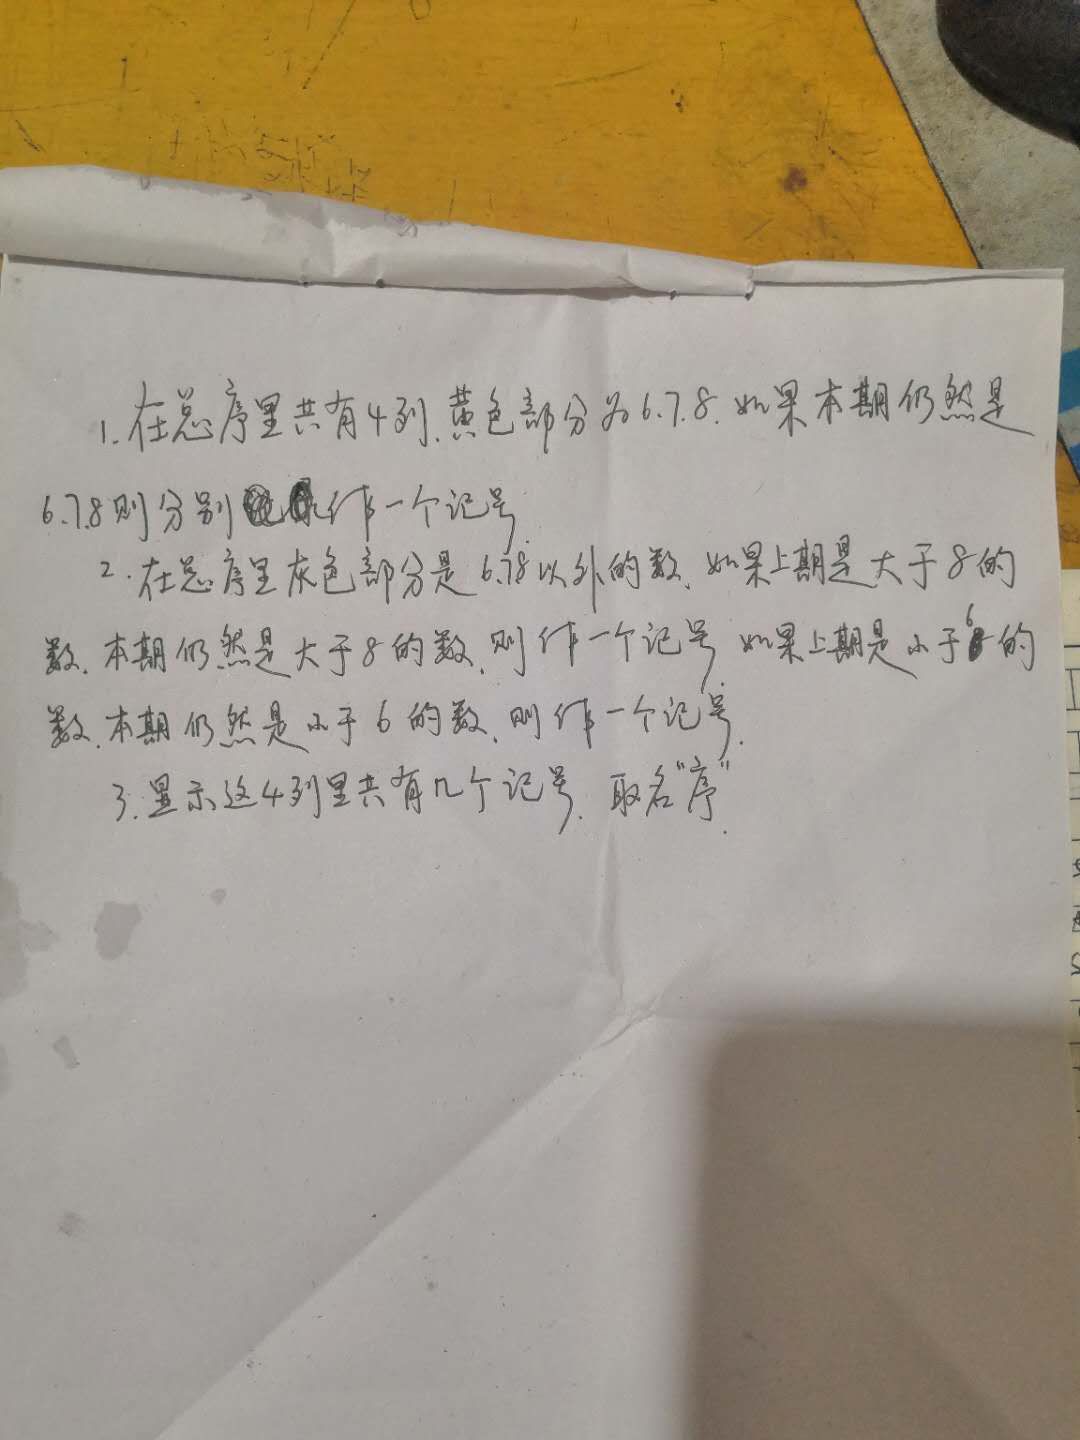 1.在总序里共有4列.黄色部分为6.7.8.如果本期仍然是
6.7.8则分别作一个记号.
2.在总序里灰色部分是6.78以外的数.如果上期是大于8的
数.本期仍然是大于8的数.则作一个记号.如果上期是小于6的
数.本期仍然是小于6的数.则作一个记号.
3.显示这4列里共有几个记号.取名"序".